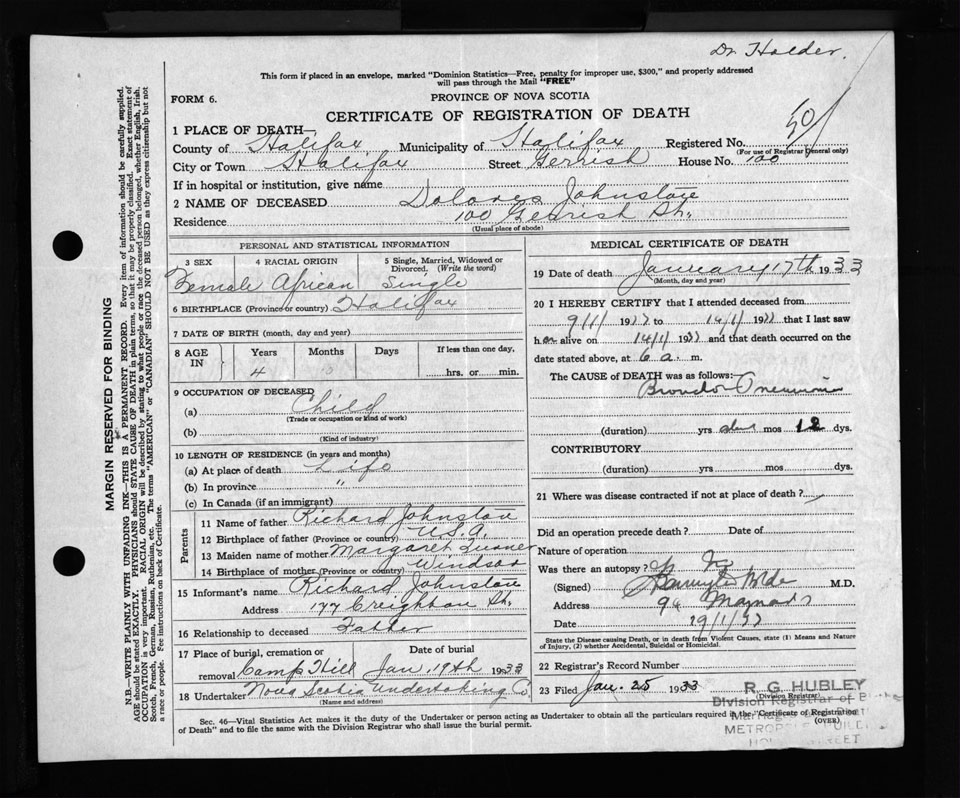 Dr. Holder.
This form if placed in an envelope, marked "Dominion Statistics—Free, penalty for improper use, $300," and properly addressed
will pass through the Mail "FREE"
FORM 6.
PROVINCE OF NOVA SCOTIA
CERTIFICATE OF REGISTRATION OF DEATH
50
1 PLACE OF DEATH—
County of Halifax Municipality of Halifax Registered No.
(For use of Registrar General only)
City or Town Halifax Street Gerrish House No. 100
If in hospital or institution, give name
2 NAME OF DECEASED Dolores Johnstone
Residence 100 Gerrish St.
(Usual place of abode)
PERSONAL AND STATISTICAL INFORMATION
3 SEX 4 RACIAL ORIGIN 5 Single, Married, Widowed or
Divorced. (Write the word)
Female African Single
6 BIRTHPLACE (Province or country) Halifax
7 DATE OF BIRTH (month, day and year)
8 AGE IN Years Months Days If less than one day,
4 hrs. or min.
9 OCCUPATION OF DECEASED
(a) Child
(Trade or occupation or kind of work)
(b)
(Kind of industry)
10 LENGTH OF RESIDENCE (in years and months)
(a) At place of death Life
(b) In province "
(c) In Canada (if an immigrant)
Parents
11 Name of father Richard Johnstone
12 Birthplace of father (Province or country) U.S.A.
13 Maiden name of mother Margaret
14 Birthplace of mother (Province or country) Windsor
15 Informant's name Richard Johnstone
Address 177 Creighton St.
16 Relationship to deceased Father
17 Place of burial, cremation or removal Date of burial
Camp Hill Jan. 19th 1933
18 Undertaker Nova Scotia Undertaking Co.
(Name and address)
MEDICAL CERTIFICATE OF DEATH
19 Date of death January 17th 1933
(Month, day and year)
20 I HEREBY CERTIFY that I attended deceased from
9/1/1933 to 14/1/1933 that I last saw
her alive on 14/1/1933 and that death occurred on the
date stated above, at 6 a. m.
The CAUSE of DEATH was as follows:
Broncho Pneumonia
(duration) yrs mos 12 dys.
CONTRIBUTORY
(duration) yrs mos dys.
21 Where was disease contracted if not at place of death?
Did an operation precede death? Date of
Nature of operation
Was there an autopsy? No
(Signed) M.D.
Address 96 Maynard St
Date 19/1/33
State the Disease causing Death, or in death from Violent Causes, state (1) Means and Nature
of Injury, (2) whether Accidental, Suicidal or Homicidal.
22 Registrar's Record Number
23 Filed Jan. 25 1933
(Division Registrar)
R. G. HUBLEY
Division Registrar of
Sec. 46—Vital Statistics Act makes it the duty of the Undertaker or person acting as Undertaker to obtain all the particulars required in the "Certificate of Registration
of Death" and to file the same with the Division Registrar who shall issue the burial permit.
(OVER)
MARGIN RESERVED FOR BINDING
N.B.—WRITE PLAINLY WITH UNFADING INK—THIS IS A PERMANENT RECORD. Every item of information should be carefully supplied.
AGE should be stated EXACTLY. PHYSICIANS should STATE CAUSE OF DEATH in plain terms, so that it may be properly classified. Exact statement of
OCCUPATION is very important. RACIAL ORIGIN will be described by stating to what people or race the deceased person belonged, whether English, Irish,
Scotch, French, German, Russian, Ruthenian, etc. The terms "AMERICAN" or "CANADIAN" SHOULD NOT BE USED as they express citizenship but not
a race or people. Fee instructions on back of Certificate.